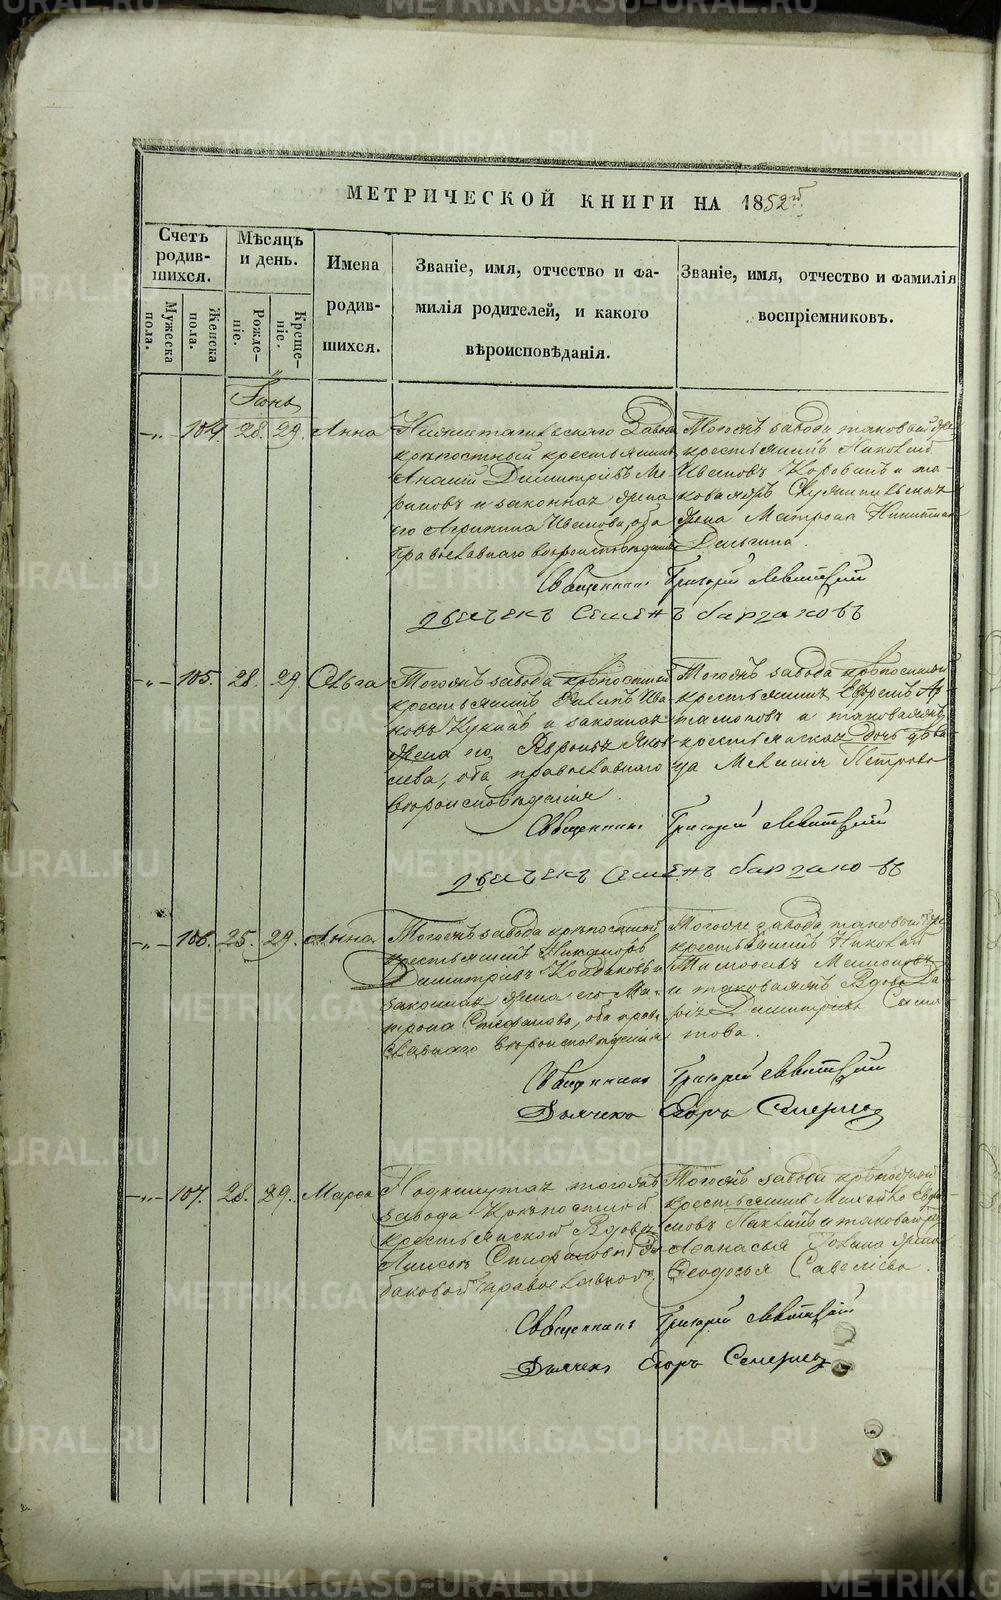 METRIKI.GASO-URAL.RU
МЕТРИЧЕСКОЙ КНИГИ НА 1852й
Счетъ родив-шихся.
Мужеска пола.
Женска пола.
Мѣсяцъ и день.
Рожде-ніе.
Креще-ніе.
Имена
родив-
шихся.
Званіе, имя, отчество и фа-
милія родителей, и какого
вѣроисповѣданія.
Званіе, имя, отчество и фамилія
воспріемниковъ.
Іюнь
104. 28. 29. Анна
Нижнетагильскаго Завода
крѣпостный крестьянинъ
Димитріевъ
и законная жена
его Агрипина Иванова, оба
православнаго вѣроисповѣданія
Тогожъ завода таковый же
крестьянинъ Николай
Ивановъ Коровинъ и та-
коваяжъ
жена Матрона Никитина
Священникъ Григорій Левитскій
дьечекъ Семенъ
105. 28. 29. Ольга
Тогожъ завода крѣпостной
крестьянинъ Филипъ Ива-
новъ и законная
жена его Яков-
лева, оба православнаго
вѣроисповѣданія.
Тогожъ завода крѣпостной
крестьянинъ Ефремъ Ар-
тамоновъ и таковаяжъ
крестьянская дочь дѣви-
ца Петрова
Священникъ Григорій Левитскій
дьечекъ Семенъ
106. 25. 29. Анна
Тогожъ завода крѣпостной
крестьянинъ Никаноръ
Димитріевъ и
законная жена его Ма-
трона Стефанова, оба право-
славнаго вѣроисповѣданія
Тогоже завода таковый же
крестьянинъ Николай
Тимофеевъ
и таковаяжъ Вдова Да-
рія Димитріева
това.
Священникъ Григорій Левитскій
Дьячекъ Егоръ
107. 28. 29. Марѳа
Подкинутая тогожъ
завода Крѣпостной
крестьянской Вдовѣ
Анисьѣ Стефановой
баковой православной.
Тогожъ завода крѣпостной
крестьянинъ Михайло Ефи-
мовъ и таковой же
Афанасья жена
Ѳеодосья Савельева.
Священникъ Григорій Левитскій
Дьячекъ Егоръ